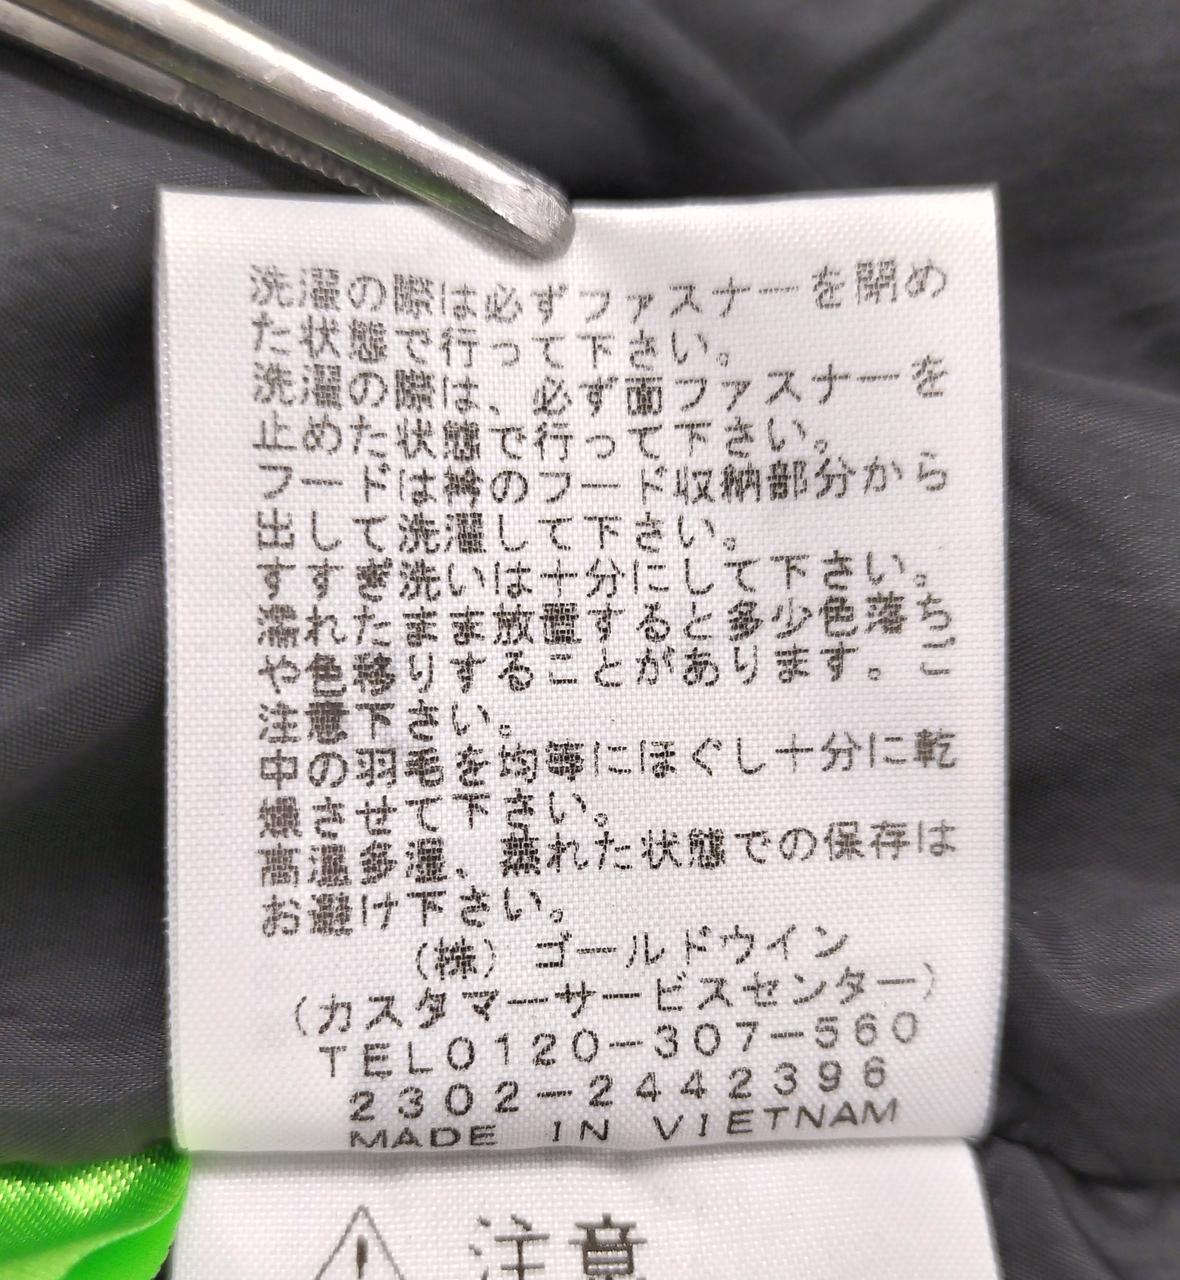 洗濯の際は必ずファスナーを閉め
た状態で行って下さい。
洗濯の際は、必ず面ファスナーを
止めた状態で行って下さい。
フードは衿のフード収納部分から
出して洗濯して下さい。
すすぎ洗いは十分にして下さい。
濡れたまま放置すると多少色落ち
や色移りすることがあります。ご
注意下さい。
中の羽毛を均等にほぐし十分に乾
燥させて下さい。
高温多湿、蒸れた状態での保存は
お避け下さい。
(株)ゴールドウイン
(カスタマーサービスセンター)
TEL0120-307-560
2302-2442396
MADE IN VIETNAM
注意